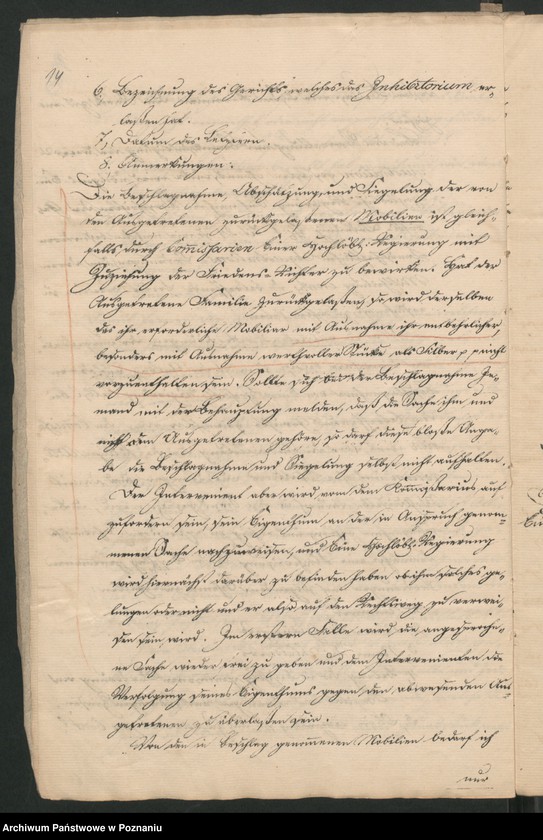 14
6. Bezeichnung des Gerichts, welches das Inhibitorium er-
laßen hat.
7, Datum des Letztern.
8. Anmerkungen.
Die Beschlagnahme, Abschätzung und Siegelung der von
den Ausgetretenen zurückgelaßenen Mobilien ist gleich-
falls durch Commissarien Einer Hochlöbl: Regierung mit
Zuziehung der Friedens-Richter zu bewirken. Hat der
Ausgetretene Familie zurückgelaßen, so wird derselben
das ihr erforderliche Mobiliar mit Ausnahme ihr entbehrlicher,
besonders mit Ausnahme werthvoller Stücke als Silber p p nicht
vorzuenthalten sein. Sollte sich bei der Beschlagnahme Je-
mand mit der Behauptung melden, daß die Sache ihm und
nicht dem Ausgetretenen gehöre, so darf diese bloße Anga-
be die Beschlagnahme und Siegelung selbst nicht aufhalten.
Der Intervenient aber wird von dem Commissarius auf-
zufordern sein, sein Eigenthum an der in Anspruch genom-
menen Sache nachzuweisen, und Eine Hochlöbl: Regierung
wird hiernächst darüber zu befinden haben ob ihm solches ge-
lungen oder nicht und er also auf den Rechtsweg zu verwei-
sen sein wird. Im erstern Falle wird die angesproche-
ne Sache wieder frei zu geben und dem Intervenienten die
Verfolgung seines Eigenthums gegen den abwesenden Aus-
getretenen zu überlaßen sein.
Von den in Beschlag genommenen Mobilien bedarf ich
nur
Archiwum Państwowe w Poznaniu